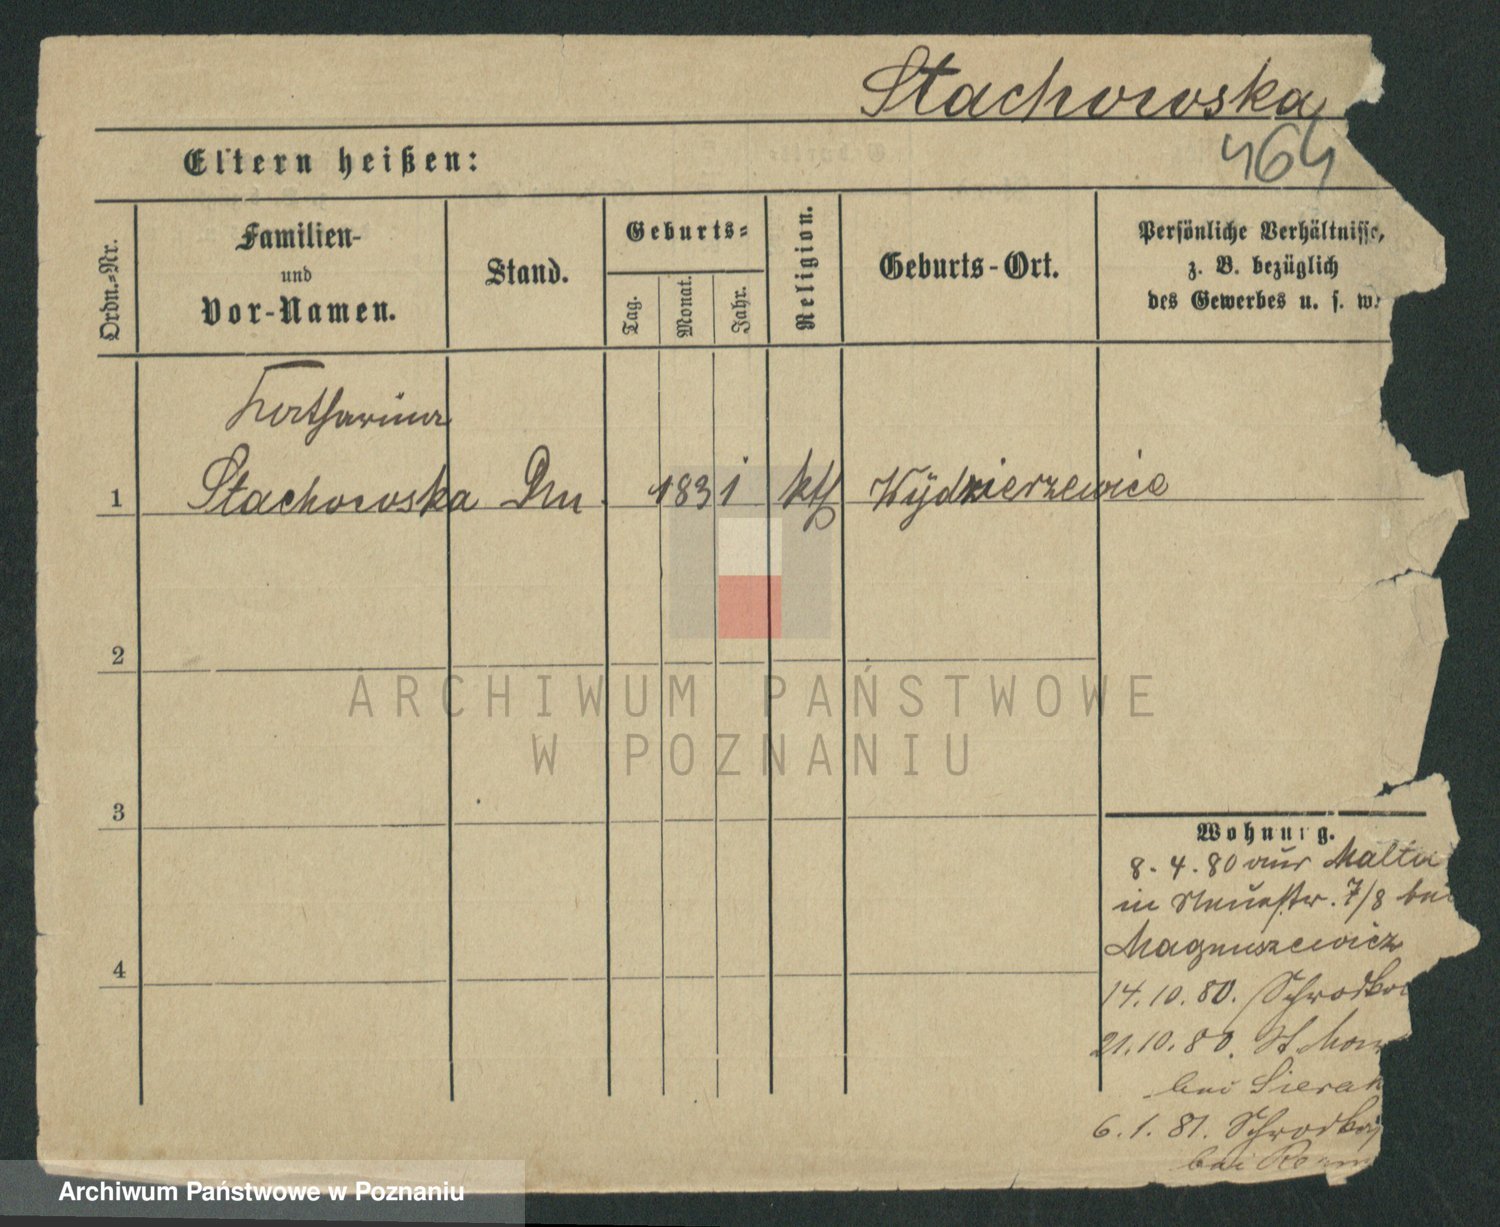 Stachowska
464
Eltern heißen:
Ordn.-Nr.
Familien-
und
Vor-Namen.
Stand.
Geburts-
Tag.
Monat.
Jahr.
Religion.
Geburts-Ort.
Persönliche Verhältnisse,
z. B. bezüglich
des Gewerbes u. s. w.
Katharina
1 Stachowska 1831 kth Wydzierzewice
2
3
4
ARCHIWUM PAŃSTWOWE
W POZNANIU
Wohnung.
8. 4. 80 aus Malta
in Neuestr. 7/8 bei
Magnuszewicz
14. 10. 80.
21. 10. 80. St.
bei
6. 1. 81.
bei
Archiwum Państwowe w Poznaniu